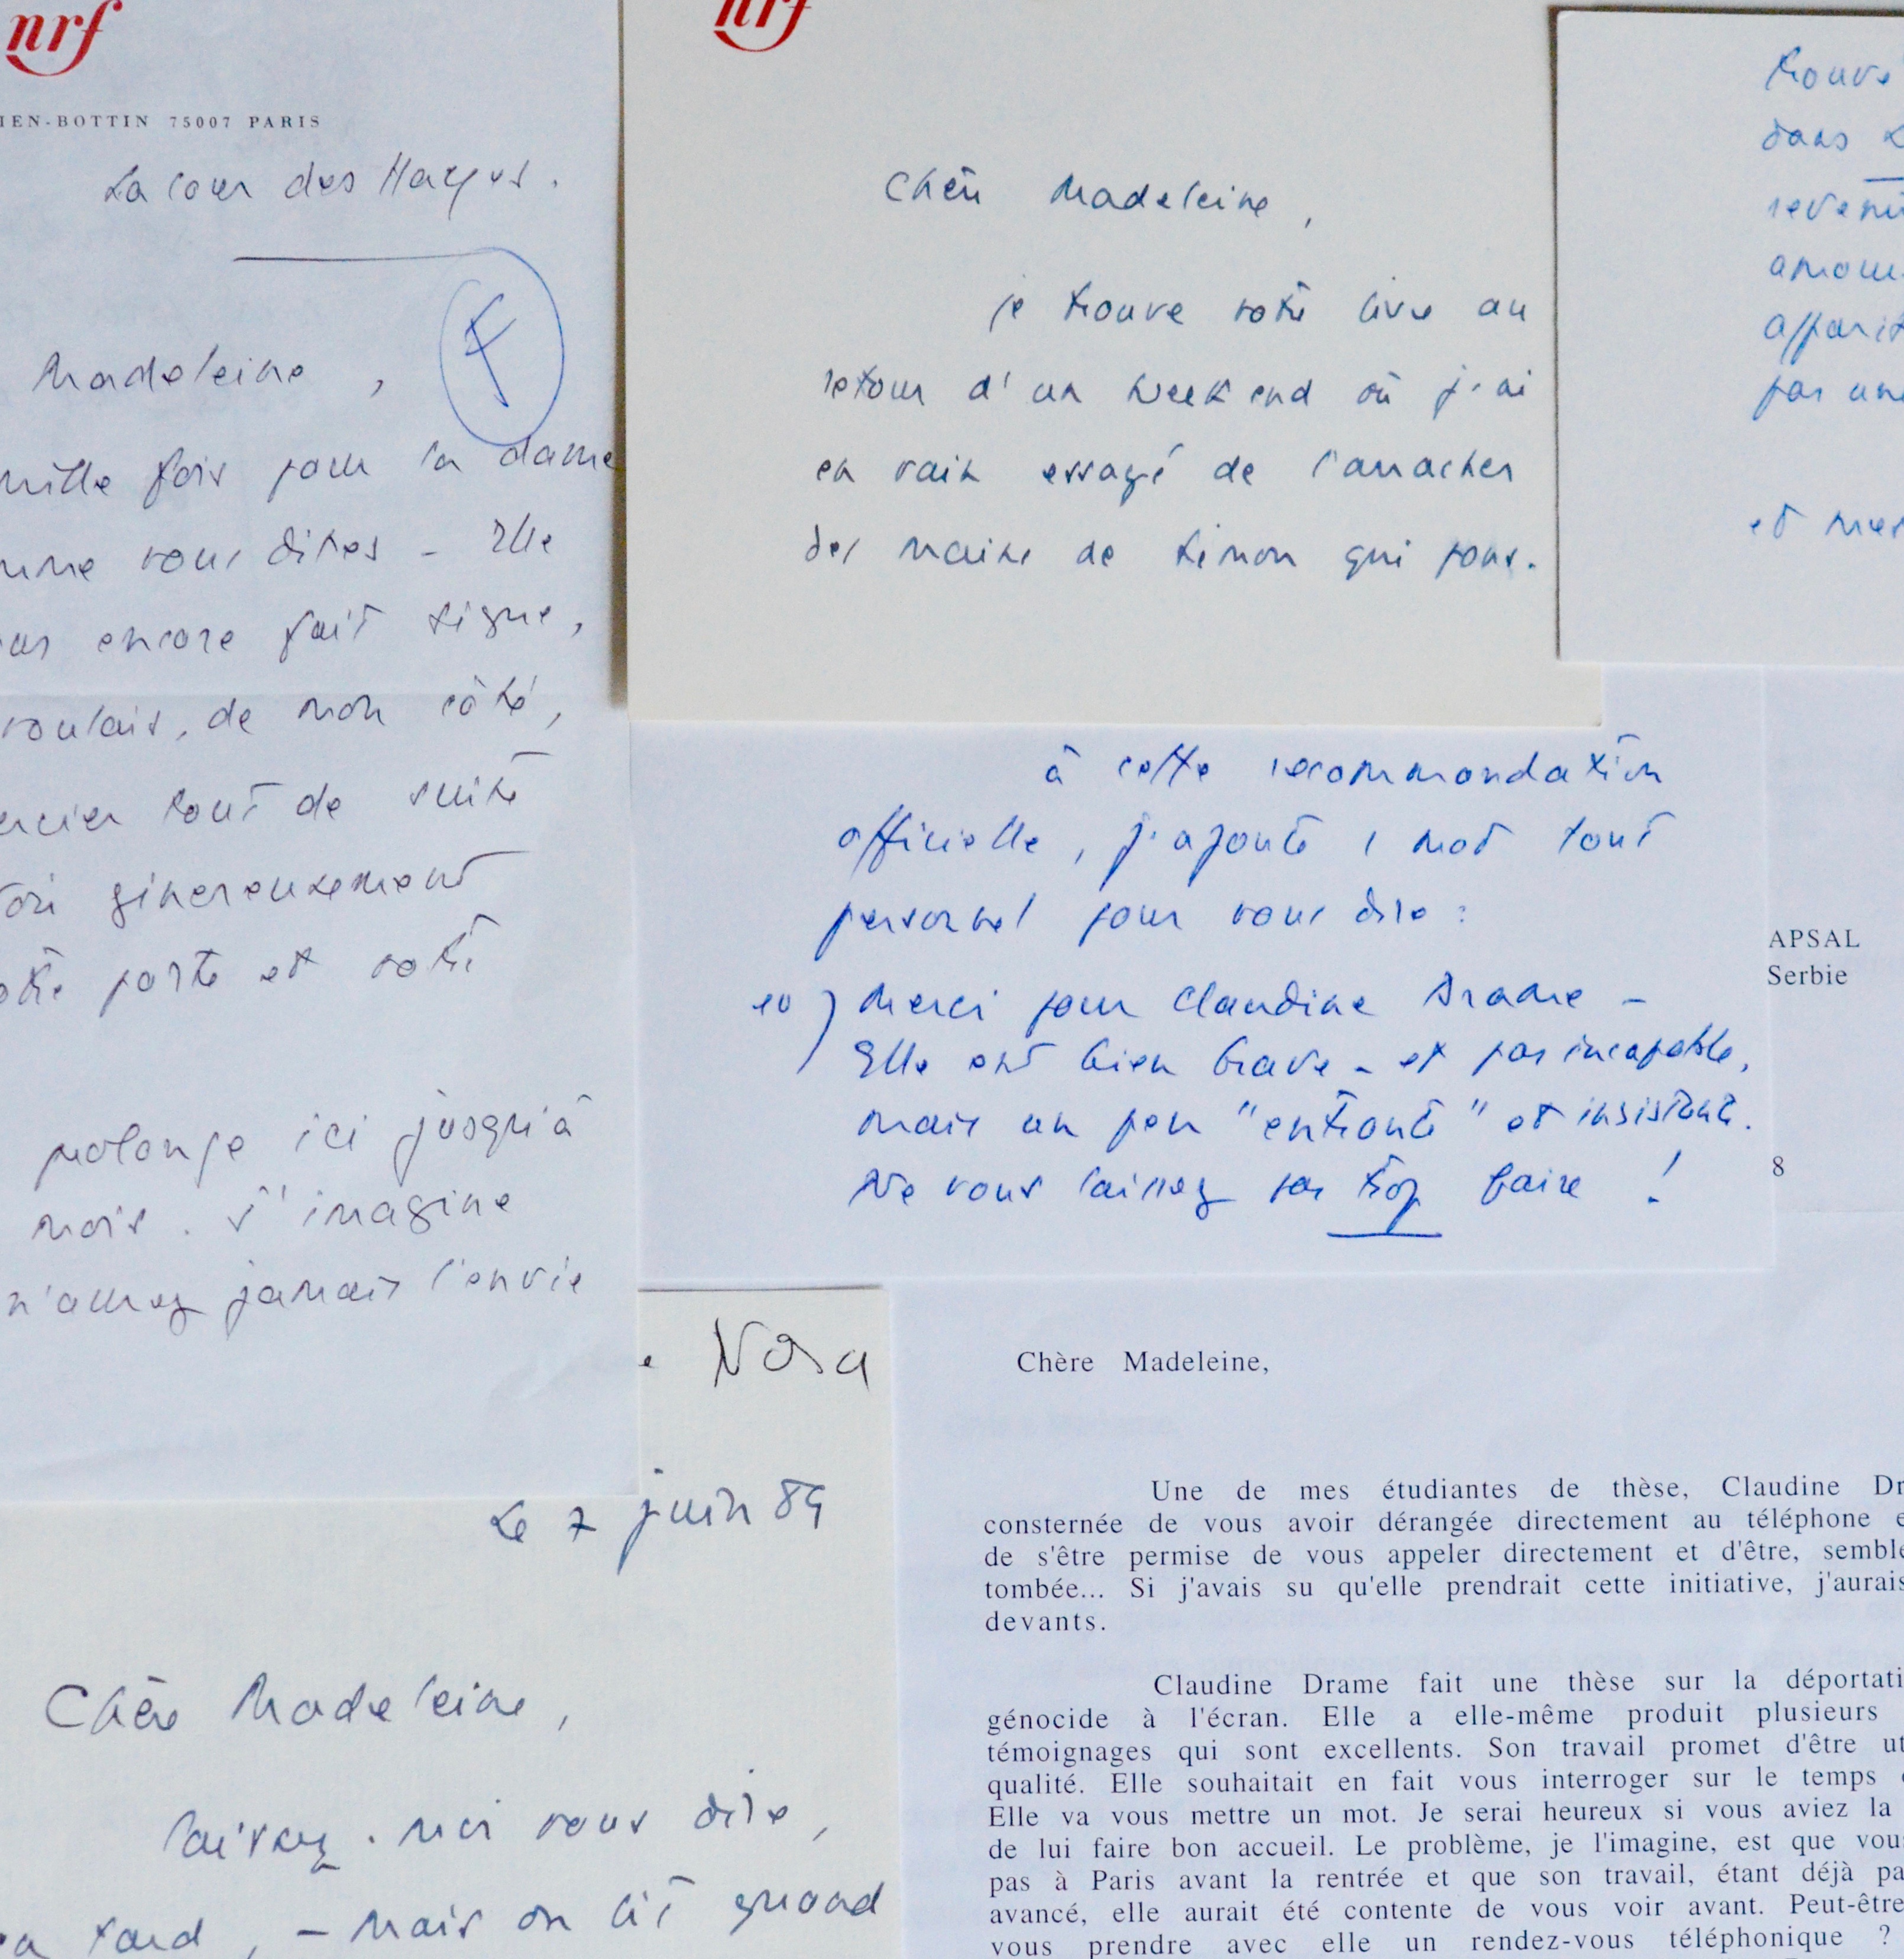 nrf
IEN-BOTTIN 75007 PARIS
La cour des Hayes.
F
Madeleine,
mille fois pour la dame
vous dites - Elle
encore fait signe,
voulais, de mon côté,
tout de suite
généreusement
porte et votre
prolonge ici jusqu'à
mois. J'imagine
n'aurez jamais l'envie
nrf
Chère Madeleine,
je trouve votre livre au
retour d'un week end où j'ai
en vain essayé de l'arracher
des mains de Simon qui pour.
trouve
dans
amour
par une
et mes
à cette recommandation
officielle, j'ajoute 1 mot tout
personnel pour vous dire :
10) Merci pour Claudine Drame -
Elle est bien brave - et pas incapable,
mais un peu "entrante" et insistante.
Ne vous laissez pas trop faire !
APSAL
Serbie
8
Nora
Le 7 juin 89
Chère Madeleine,
laissez-moi vous dire,
tard, - mais on lit quand
Chère Madeleine,
Une de mes étudiantes de thèse, Claudine Dr
consternée de vous avoir dérangée directement au téléphone e
de s'être permise de vous appeler directement et d'être, semble
tombée... Si j'avais su qu'elle prendrait cette initiative, j'aurais
devants.
Claudine Drame fait une thèse sur la déportati
génocide à l'écran. Elle a elle-même produit plusieurs
témoignages qui sont excellents. Son travail promet d'être ut
qualité. Elle souhaitait en fait vous interroger sur le temps
Elle va vous mettre un mot. Je serai heureux si vous aviez la
de lui faire bon accueil. Le problème, je l'imagine, est que vou
pas à Paris avant la rentrée et que son travail, étant déjà pa
avancé, elle aurait été contente de vous voir avant. Peut-être
vous prendre avec elle un rendez-vous téléphonique ?